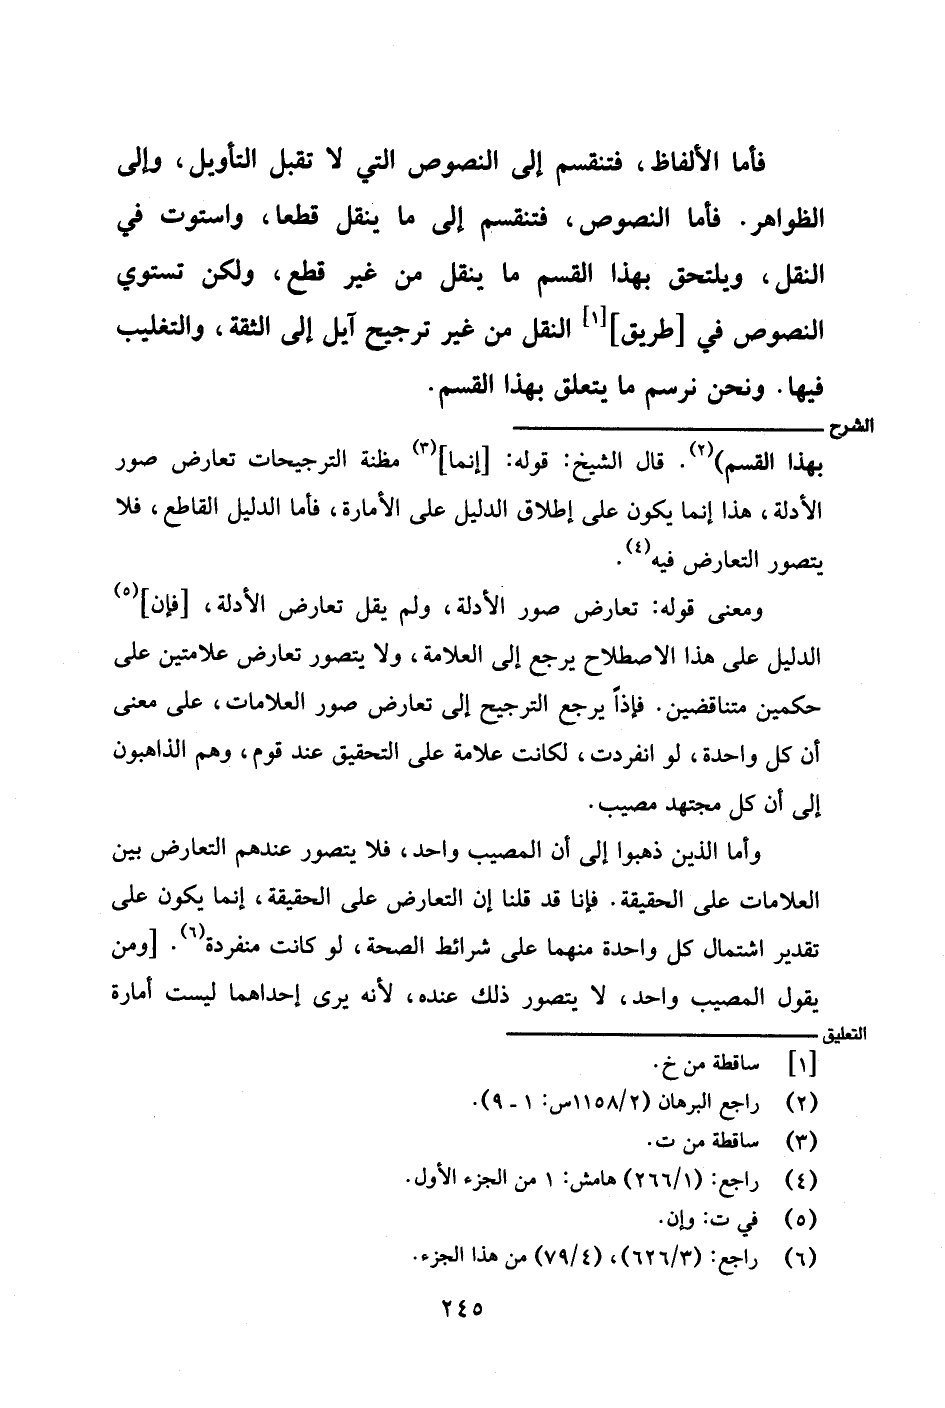 فأما الألفاظ، فتنقسم إلى النصوص التي لا تقبل التأويل، وإلى
الظواهر. فأما النصوص، فتنقسم إلى ما ينقل قطعا، واستوت في
النقل، ويلتحق بهذا القسم ما ينقل من غير قطع، ولكن تستوي
النصوص في [طريق][١] النقل من غير ترجيح آيل إلى الثقة، والتغليب
فيها. ونحن نرسم ما يتعلق بهذا القسم.
الشرح
بهذا القسم)(٢). قال الشيخ: قوله: [إنما](٣) مظنة الترجيحات تعارض صور
الأدلة، هذا إنما يكون على إطلاق الدليل على الأمارة، فأما الدليل القاطع، فلا
يتصور التعارض فيه(٤).
ومعنى قوله: تعارض صور الأدلة، ولم يقل تعارض الأدلة، [فإن](٥)
الدليل على هذا الاصطلاح يرجع إلى العلامة، ولا يتصور تعارض علامتين على
حكمين متناقضين. فإذاً يرجع الترجيح إلى تعارض صور العلامات، على معنى
أن كل واحدة، لو انفردت، لكانت علامة على التحقيق عند قوم، وهم الذاهبون
إلى أن كل مجتهد مصيب.
وأما الذين ذهبوا إلى أن المصيب واحد، فلا يتصور عندهم التعارض بين
العلامات على الحقيقة. فإنا قد قلنا إن التعارض على الحقيقة، إنما يكون على
تقدير اشتمال كل واحدة منهما على شرائط الصحة، لو كانت منفردة(٦). [ومن
يقول المصيب واحد، لا يتصور ذلك عنده، لأنه يرى إحداهما ليست أمارة
التعليق
[١] ساقطة من خ.
(٢) راجع البرهان (١١٥٨/٢س: ١ - ٩).
(٣) ساقطة من ت.
(٤) راجع: (٢٦٦/١) هامش: ١ من الجزء الأول.
(٥) في ت: وإن.
(٦) راجع: (٦٢٦/٣)، (٧٩/٤) من هذا الجزء.
٢٤٥